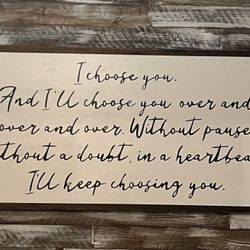 I choose you.
And I'll choose you over and
over and over. Without pause
without a doubt, in a heartbeat
I'll keep choosing you.